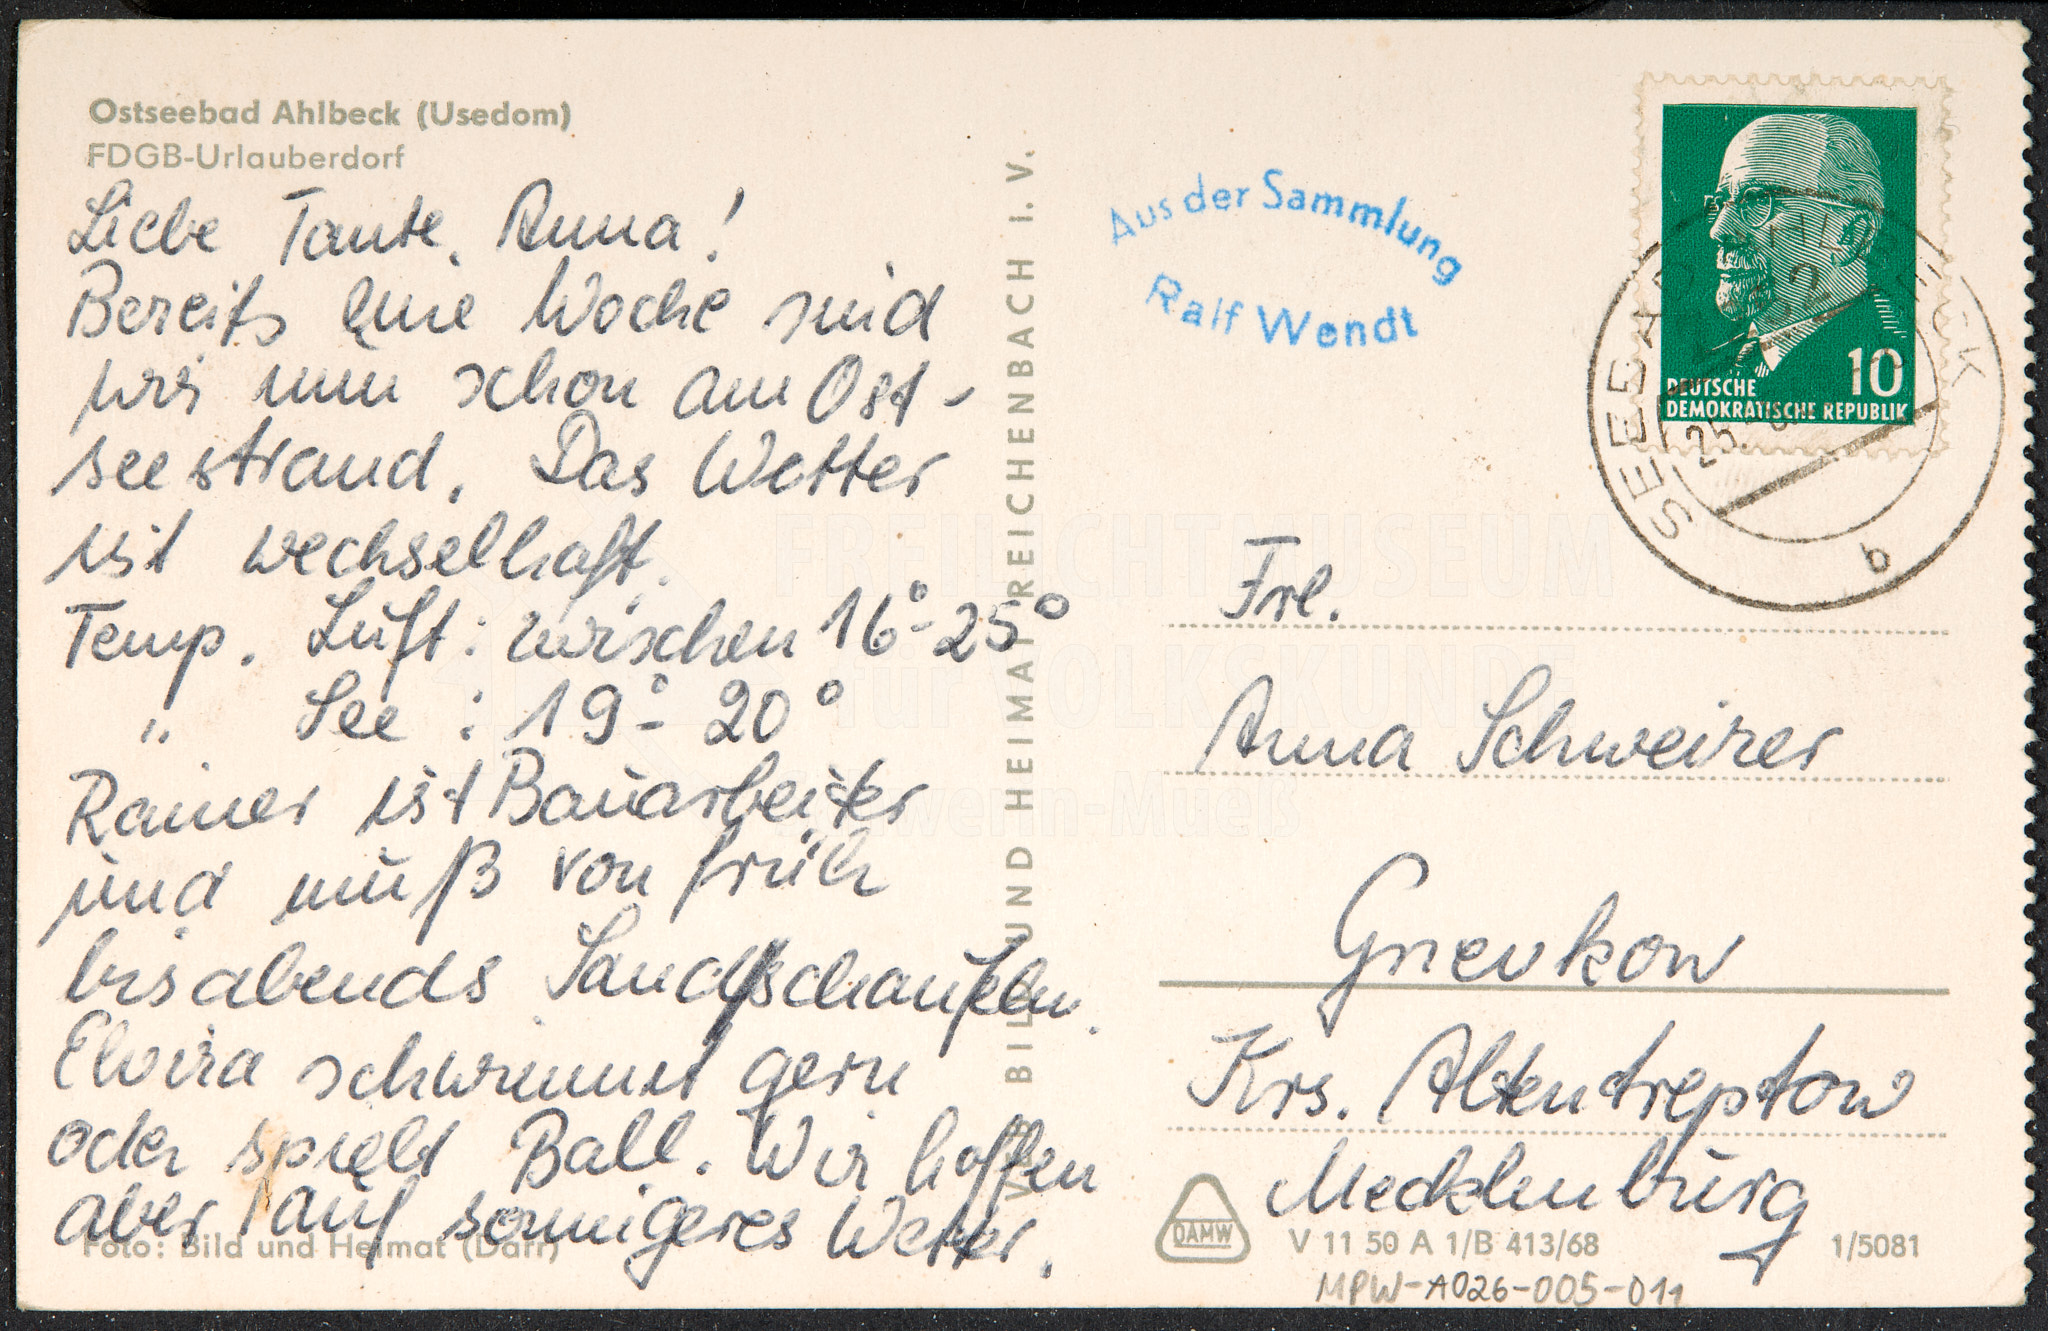 Ostseebad Ahlbeck (Usedom)
FDGB-Urlauberdorf
Liebe Tante, Anna!
Bereits eine Woche sind
wir nun schon am Ost-
seestrand. Das Wetter
ist wechselhaft.
Temp. Luft: zwischen 16°-25°
" See : 19°- 20°
Rainer ist Bauarbeiter
und muß von früh
bis abends Sandschaufeln.
Elvira schwimmt gern
oder spielt Ball. Wir hoffen
aber auf sonnigeres Wetter.
Foto: Bild und Heimat (Darr)
VEB BILD UND HEIMAT REICHENBACH I. V.
Aus der Sammlung
Ralf Wendt
DEUTSCHE
DEMOKRATISCHE REPUBLIK
10
SEEBAD AHLBECK
25.
b
Frl.
Anna Schweizer
Gnevkow
Krs. Altentreptow
Mecklenburg
DAMW
V 11 50 A 1/B 413/68
1/5081
MPW-A026-005-011
FREILICHTMUSEUM
für VOLKSKUNDE
Schwerin-Mueß